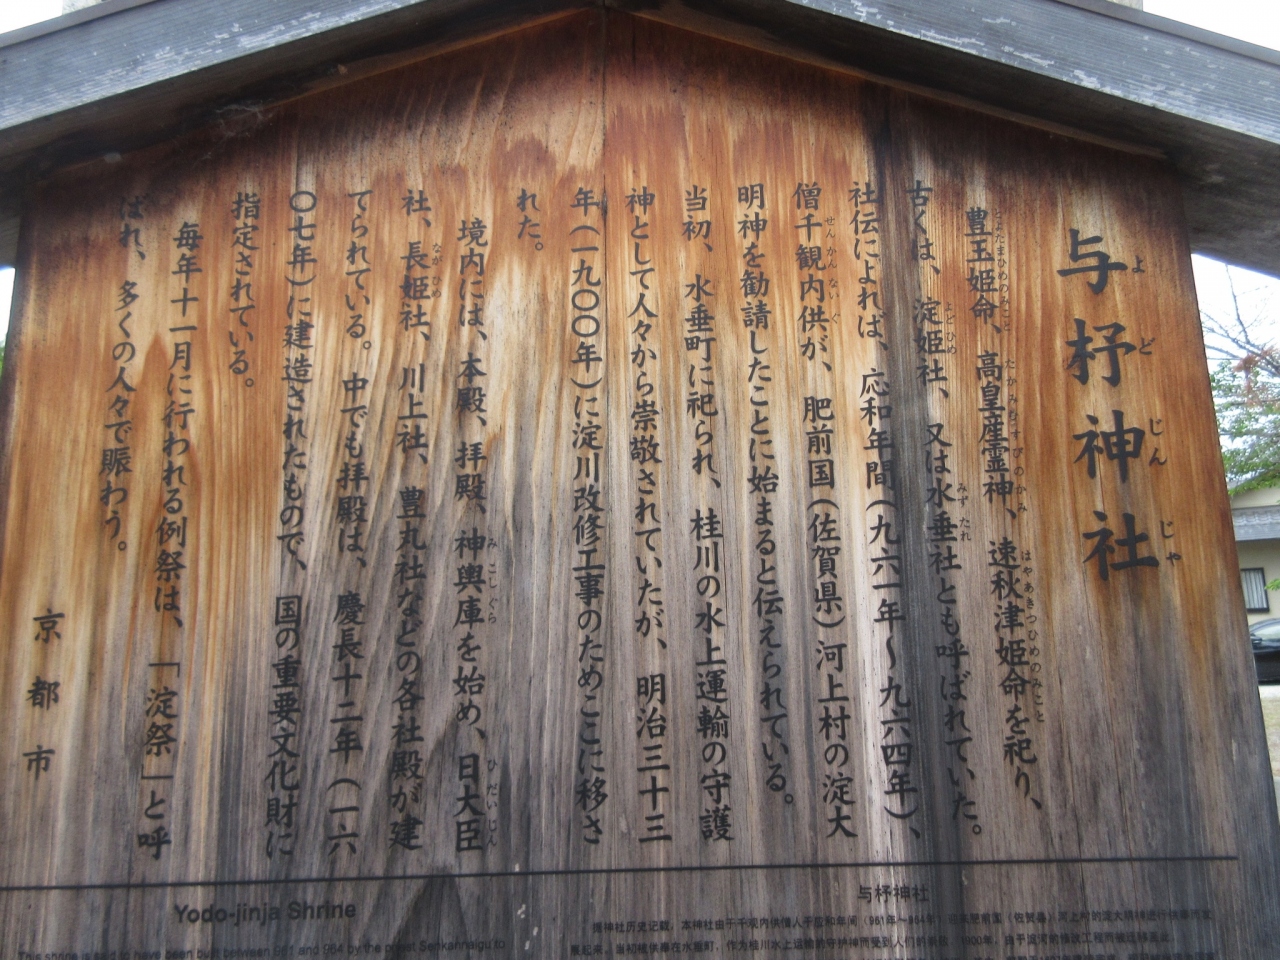 与杼神社
豊玉姫命、高皇産霊神、速秋津姫命を祀り、
古くは、淀姫社、又は水垂社とも呼ばれていた。
社伝によれば、応和年間(九六一年〜九六四年)、
僧千観内供が、肥前国(佐賀県)河上村の淀大
明神を勧請したことに始まると伝えられている。
当初、水垂町に祀られ、桂川の水上運輸の守護
神として人々から崇敬されていたが、明治三十三
年(一九〇〇年)に淀川改修工事のためここに移さ
れた。
境内には、本殿、拝殿、神輿庫を始め、日大臣
社、長姫社、川上社、豊丸社などの各社殿が建
てられている。中でも拝殿は、慶長十二年(一六
〇七年)に建造されたもので、国の重要文化財に
指定されている。
毎年十一月に行われる例祭は、「淀祭」と呼
ばれ、多くの人々で賑わう。
京都市
Yodo-jinja Shrine
This shrine is said to have been built between 961 and 964 by the priest Senkannaigu to
与杼神社
据神社历史记载，本神社由于千观内供僧人于应和年间（961年～964年）